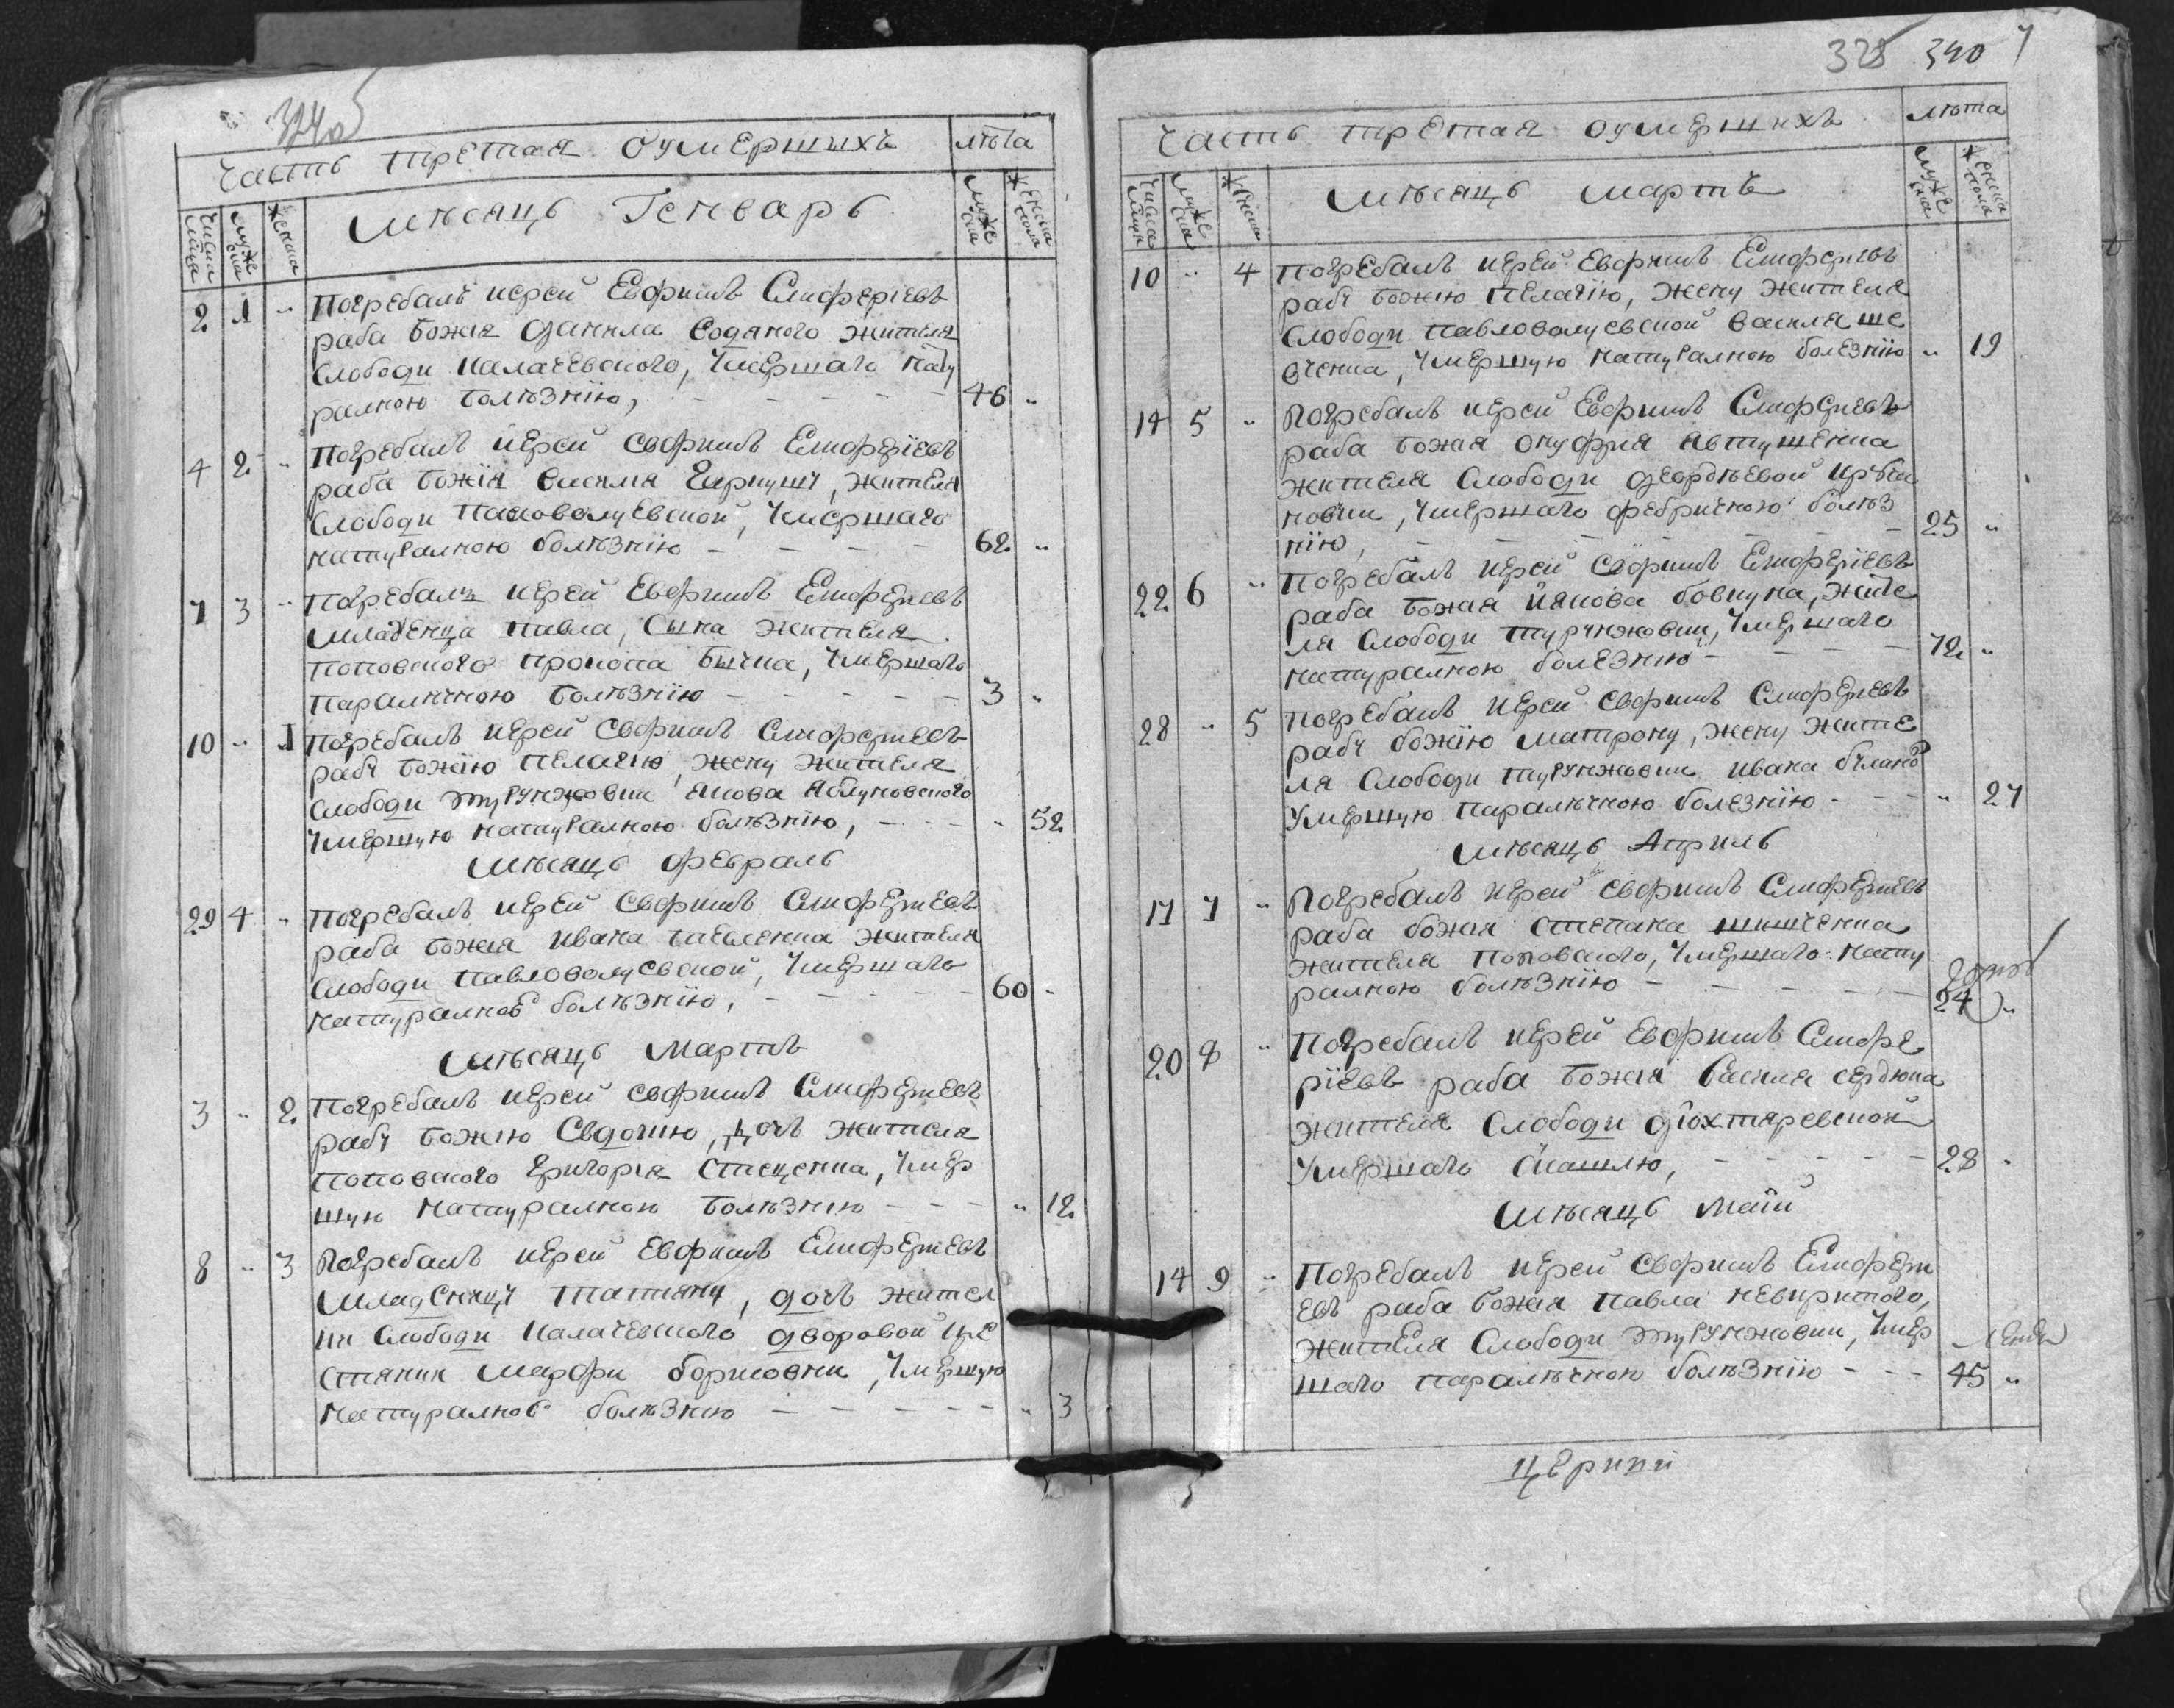 324об
Часть третая оумершихъ лѣта
Числа мѣца муже ска женска Мѣсяцъ Генварь муже ска женска пола
2 1 „ Погребалъ иерей Евфимъ Елиферіевъ
раба Божия Данила Водяного жителя
Слободи Калачевского, умершаго нату
ралною болѣзнїю, - - - - - 46 „
4 2 „ Погребалъ иерей Евфимъ Елиферїевъ
раба Божїя жителя
Слободи умершаго
натуралною болѣзнїю - - - - 62 „
7 3 „ Погребалъ иерей Евфимъ Елифериевъ
младенца Павла, Сына жителя
поповского Прокопа Бычка, умершаго
паралѣчною болѣзнїю - - - - - 3 „
10 „ 1 Погребалъ иерей Евфимъ Елифериевъ
рабу Божїю Пелагїю, жену жителя
Слободи Турунжовки Якова Яблуновского
умершую натуралною болѣзнїю, - - - „ 52
Мѣсяцъ февраль
29 4 „ Погребалъ иерей Евфимъ Елифериевъ
раба Божия Ивана жителя
Слободи Павловолуевской, умершаго
натуралною болѣзнїю, - - - - - 60 „
Мѣсяцъ Мартъ
3 „ 2 Погребалъ иерей Евфимъ Елифериевъ
рабу Божию Евдокию, дочъ жителя
поповского Григория Стеценка, умер
шую натуралною болѣзнию - - - „ 12
8 „ 3 Погребалъ иерей Евфимъ Елифериевъ
младеницу Татияну, дочъ жител
ки Слободи Калачевского дворовой кре
стянки Марфи Борисовни, умершую
натуралною болѣзнию - - - - - „ 3
325 340 7
Часть третая оумершихъ лѣта
Числа мѣца муже ска женска Мѣсяцъ Мартъ муже ска женска пола
10 „ 4 Погребалъ иерей Евфимъ Елифериевъ
рабу Божию Пелагїю, жену жителя
Слободи Павловолуевской Василя Ше
вченка, умершую натуралною болезнїю „ 19
14 5 „ Погребалъ иерей Евфимъ Елифериевъ
раба Божая Онуфрия Автушенка
жителя Слободи
умершаго фебричною болѣз
нїю, - - - - - - 25 „
22 6 „ Погребалъ иерей Евфимъ Елиферїевъ
раба Божая Иякова Бовкуна, жите
ля Слободи Турунжовки, умершаго
натуралною болезнию - - - - 72 „
28 „ 5 Погребалъ иерей Евфимъ Елифериевъ
рабу Божїю Матрону, жену жите
ля Слободи Турунжовки Ивана
умершую паралѣчною болезнїю - - - „ 27
Мѣсяцъ Априль
17 7 „ Погребалъ иерей Евфимъ Елифериевъ
раба Божия Степана Шишченка
жителя поповского, умершаго нату
ралною болѣзнїю - - - - - 24 „
20 8 „ Погребалъ иерей Евфимъ Елифе
рїевъ раба Божия Василя Сердюка
жителя Слободи Дїохтяревской
умершаго Кашлю, - - - - - 28 „
Мѣсяцъ Маїй
14 9 „ Погребалъ иерей Евфимъ Елифери
евъ раба Божия Павла Невкритого,
жителя Слободи Турунжовки, умер
шаго паралѣчною болѣзнїю - - - 45 „
церкви